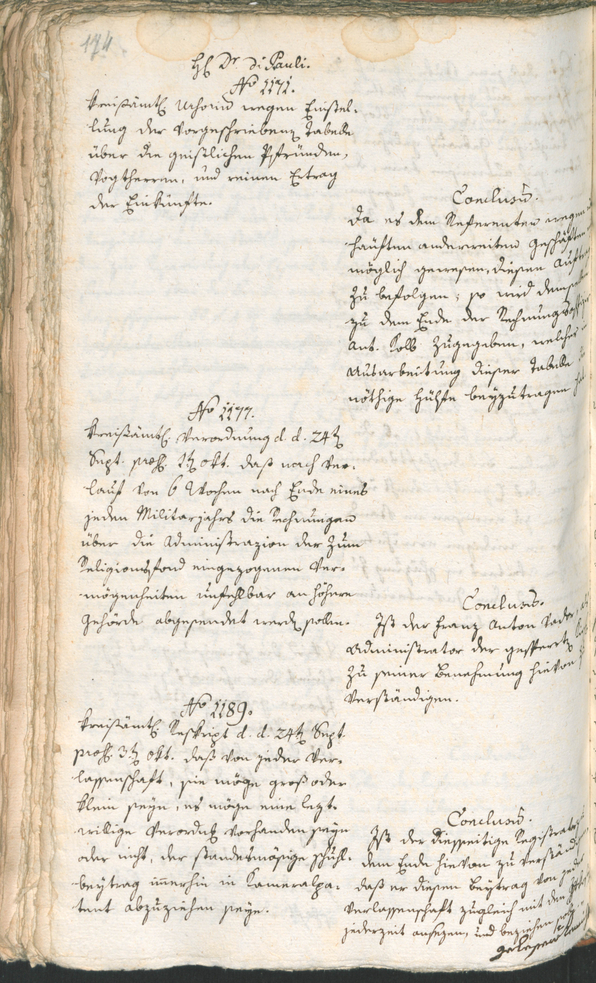 174.
H. Dr. di Pauli.
No 1171.
Kreisämtl. Urhorium wegen Einstel-
lung der vorgeschriebenen Tabelle
über die geistlichen Pfründen,
Vogtherren, und reinen Ertrag
der Einkünfte.
Conclusum.
Da es dem Referenten wegen
häuften anderweitend Geschäften
möglich gewesen, diesen Auftrag
zu befolgen; so wird demselben
zu dem Ende der Rechnungs
Ant. Kolb zugegeben, welcher
Ausarbeitung dieser Tabelle
nöthige Hülfe beyzutragen
No 1177.
Kreisämtl. Verordnung d. d. 24t
Sept. praes. 1t Okt. daß nach Ver-
lauf von 6 Wochen nach Ende eines
jeden Militarjahrs die Rechnungen
über die Administrazion der zum
Religionsfond eingezogenen Ver-
mögenheiten unfehlbar an höhere
Gehörde abgesendet werden sollen.
Conclusum.
Ist der Franz Anton
Administrator der gesperrten
zu seiner Benehmung hievon
verständigen.
No 1189.
Kreisämtl. Reskript d. d. 24t Sept.
praes. 3t Okt. daß von jeder Ver-
lassenschaft, sie möge groß oder
klein seyn, es möge eine lezt-
willige Verordnung vorhanden seyn
oder nicht, der standesmäsige Schuhl-
beytrag immerhin in Kameralpa-
tent abzuziehen seye.
Conclusum.
Ist der diesseitige Registrator
dem Ende hievon zu verständigen
daß er diesen Beytrag von jeder
Verlassenschaft zugleich mit den
jederzeit ansezen, und beziehen